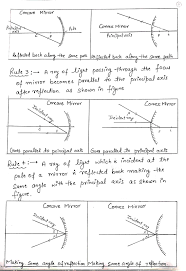 Concave Mirror
Convex Mirror
Pole
Principal axis
Reflected back along the same path
Reflected back along the same path
Rule 3:→ A ray of light passing through the focus
of mirror becomes parallel to the principal axis
after reflection as shown in
figure
Concave Mirror
Convex Mirror
Incident ray
Incident ray
Goes parallel to principal axis
Goes parallel to principal axis
Rule 4:→ A ray of light which is incident at the
pole of a mirror is reflected back making the
same angle with the principal axis as shown in
figure
Concave Mirror
Convex Mirror
Incident ray
Incident ray
Making same angle of reflection
Making same angle of reflection